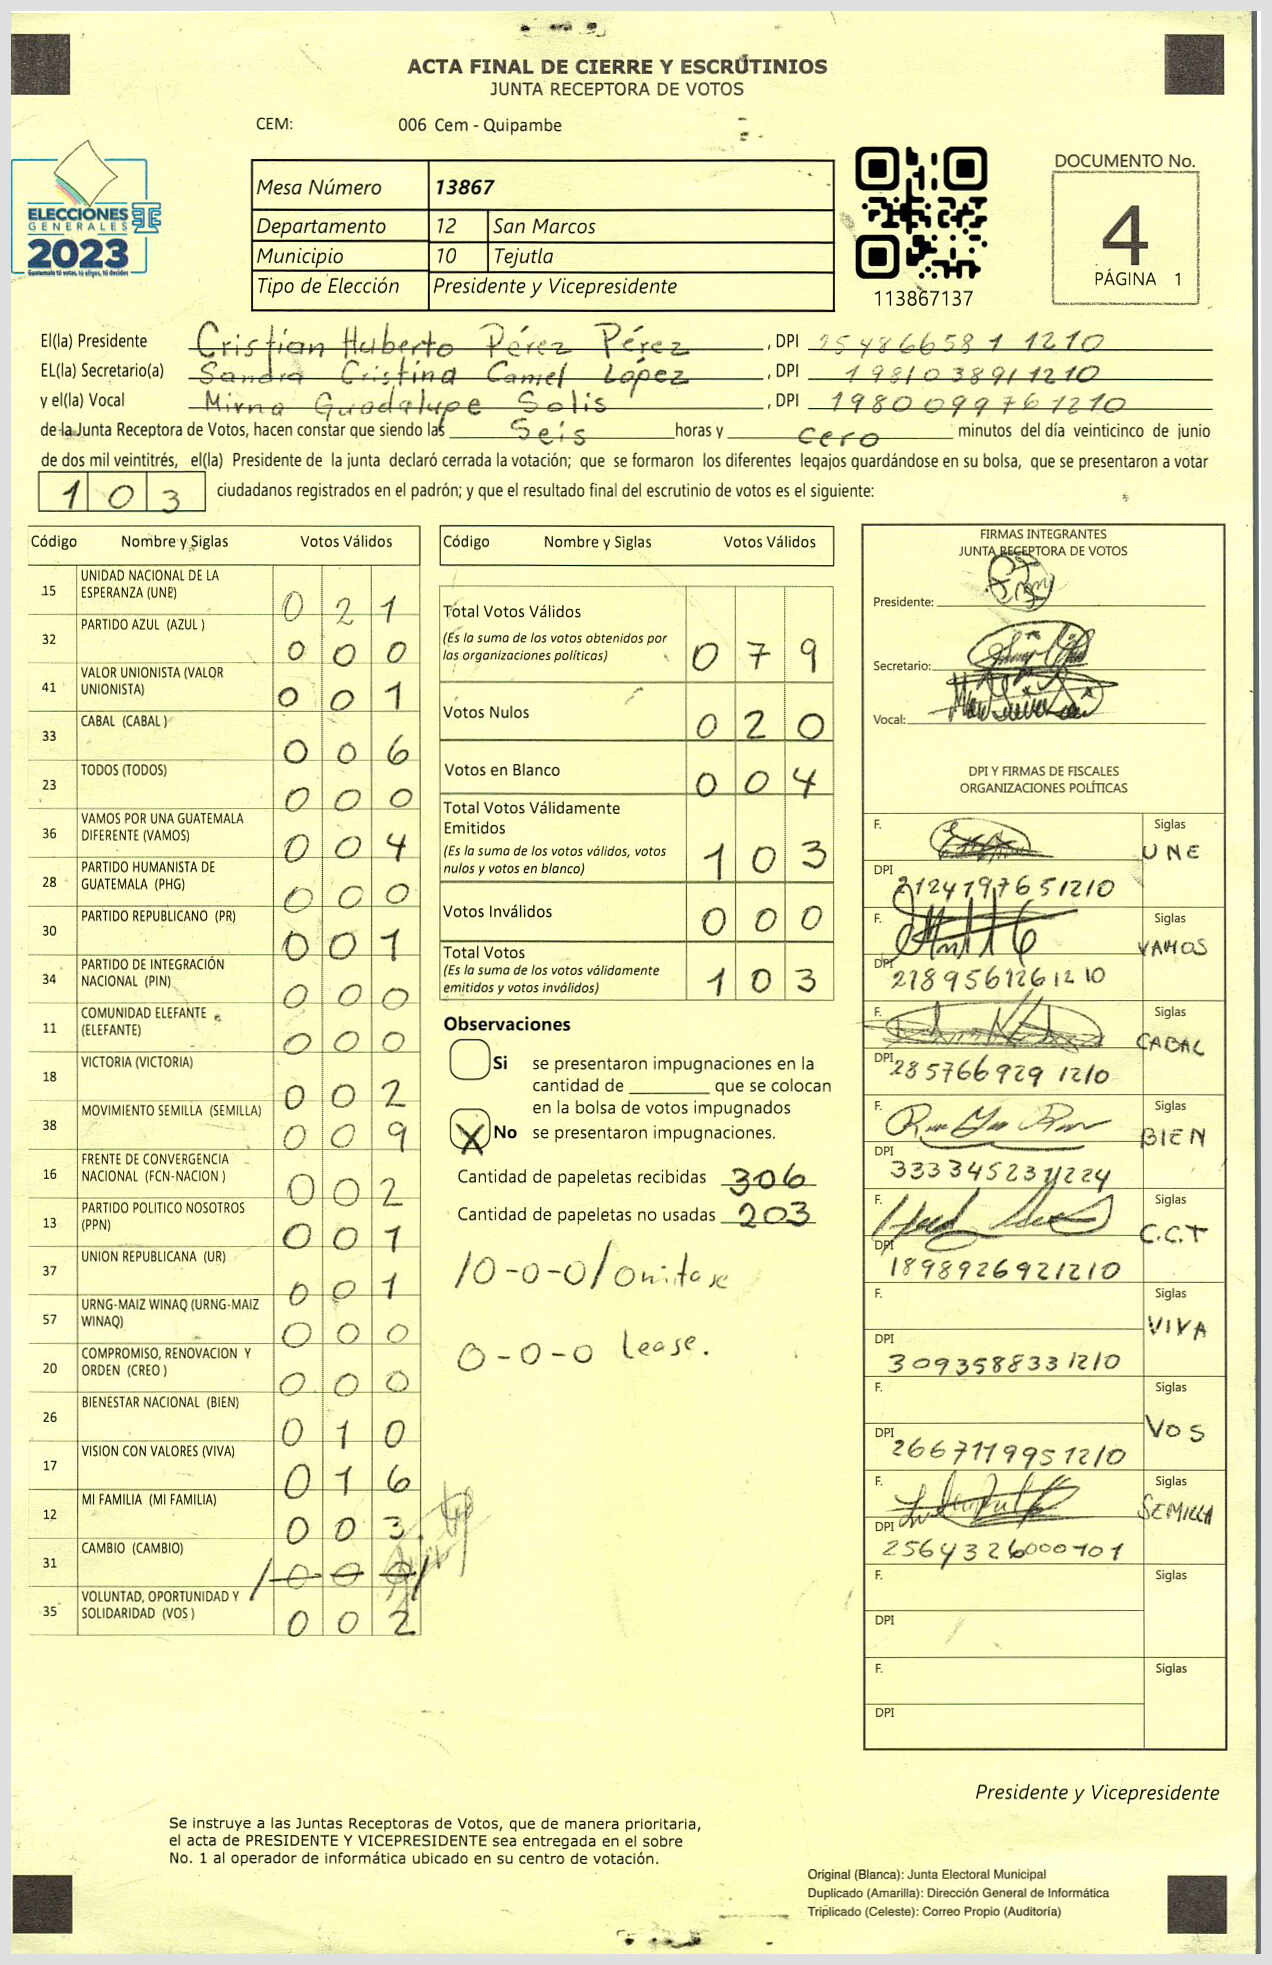 ACTA FINAL DE CIERRE Y ESCRUTINIOS
JUNTA RECEPTORA DE VOTOS
CEM: 006 Cem - Quipambe
ELECCIONES
GENERALES
2023
Guatemala tú votas, tú eliges, tú decides
Mesa Número 13867
Departamento 12 San Marcos
Municipio 10 Tejutla
Tipo de Elección Presidente y Vicepresidente
113867137
DOCUMENTO No.
4
PÁGINA 1
El(la) Presidente Cristian Huberto Pérez Pérez , DPI 2548665811210
EL(la) Secretario(a) Sandra Cristina López , DPI 1981038911210
y el(la) Vocal Mirna Guadalupe Solis , DPI 1980099761210
de la Junta Receptora de Votos, hacen constar que siendo las Seis horas y cero minutos del día veinticinco de junio
de dos mil veintitrés, el(la) Presidente de la junta declaró cerrada la votación; que se formaron los diferentes legajos guardándose en su bolsa, que se presentaron a votar
103 ciudadanos registrados en el padrón; y que el resultado final del escrutinio de votos es el siguiente:
Código Nombre y Siglas Votos Válidos
15 UNIDAD NACIONAL DE LA ESPERANZA (UNE) 0 2 1
32 PARTIDO AZUL (AZUL ) 0 0 0
41 VALOR UNIONISTA (VALOR UNIONISTA) 0 0 1
33 CABAL (CABAL ) 0 0 6
23 TODOS (TODOS) 0 0 0
36 VAMOS POR UNA GUATEMALA DIFERENTE (VAMOS) 0 0 4
28 PARTIDO HUMANISTA DE GUATEMALA (PHG) 0 0 0
30 PARTIDO REPUBLICANO (PR) 0 0 1
34 PARTIDO DE INTEGRACIÓN NACIONAL (PIN) 0 0 0
11 COMUNIDAD ELEFANTE (ELEFANTE) 0 0 0
18 VICTORIA (VICTORIA) 0 0 2
38 MOVIMIENTO SEMILLA (SEMILLA) 0 0 9
16 FRENTE DE CONVERGENCIA NACIONAL (FCN-NACION ) 0 0 2
13 PARTIDO POLITICO NOSOTROS (PPN) 0 0 1
37 UNION REPUBLICANA (UR) 0 0 1
57 URNG-MAIZ WINAQ (URNG-MAIZ WINAQ) 0 0 0
20 COMPROMISO, RENOVACION Y ORDEN (CREO ) 0 0 0
26 BIENESTAR NACIONAL (BIEN) 0 1 0
17 VISION CON VALORES (VIVA) 0 1 6
12 MI FAMILIA (MI FAMILIA) 0 0 3
31 CAMBIO (CAMBIO) /0 0 0/
35 VOLUNTAD, OPORTUNIDAD Y SOLIDARIDAD (VOS ) 0 0 2
Código Nombre y Siglas Votos Válidos
Total Votos Válidos
(Es la suma de los votos obtenidos por
las organizaciones políticas) 0 7 9
Votos Nulos 0 2 0
Votos en Blanco 0 0 4
Total Votos Válidamente
Emitidos
(Es la suma de los votos válidos, votos
nulos y votos en blanco) 1 0 3
Votos Inválidos 0 0 0
Total Votos
(Es la suma de los votos válidamente
emitidos y votos inválidos) 1 0 3
Observaciones
Si se presentaron impugnaciones en la
cantidad de ________ que se colocan
en la bolsa de votos impugnados
X No se presentaron impugnaciones.
Cantidad de papeletas recibidas 306
Cantidad de papeletas no usadas 203
/0-0-0/ Omitase
0-0-0 lease.
FIRMAS INTEGRANTES
JUNTA RECEPTORA DE VOTOS
Presidente:
Secretario:
Vocal:
DPI Y FIRMAS DE FISCALES
ORGANIZACIONES POLÍTICAS
F. Siglas
UNE
DPI 2124197651210
F. Siglas
VAMOS
DPI 2189561261210
F. Siglas
CABAL
DPI 2857669291210
F. Siglas
BIEN
DPI 3333452311224
F. Siglas
C.C.T
DPI 1898926921210
F. Siglas
VIVA
DPI 3093588331210
F. Siglas
VOS
DPI 2667119951210
F. Siglas
SEMILLA
DPI 2564326000101
F. Siglas
DPI
F. Siglas
DPI
Presidente y Vicepresidente
Se instruye a las Juntas Receptoras de Votos, que de manera prioritaria,
el acta de PRESIDENTE Y VICEPRESIDENTE sea entregada en el sobre
No. 1 al operador de informática ubicado en su centro de votación.
Original (Blanca): Junta Electoral Municipal
Duplicado (Amarilla): Dirección General de Informática
Triplicado (Celeste): Correo Propio (Auditoría)